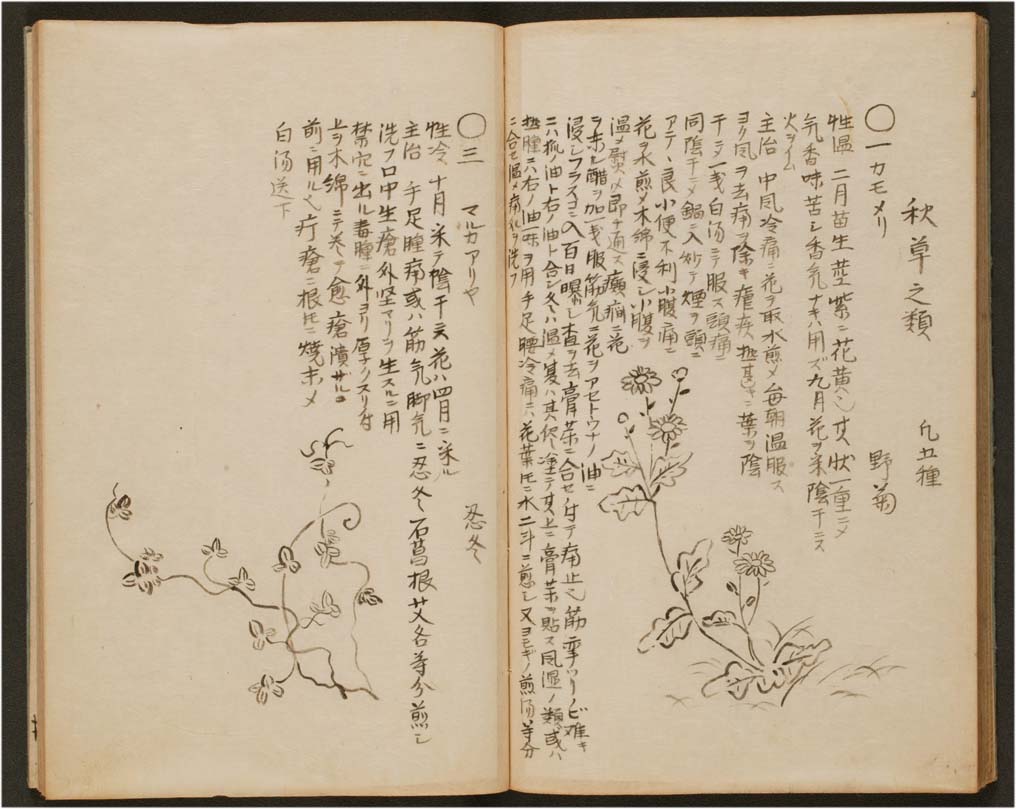 秋草之類 凢五種
〇一カモメリ 野菊
性温 二月苗生莖紫ニ花黄ヘシ其状一重ニメ
気香味苦シ香気ナキハ用ズ九月花ヲ采陰干ニス
火ヲイム
主治 中風冷痛ニ花ヲ取水煎メ毎朝温服ス
ヨク風ヲ去痛ヲ除キ瘧疾 甚キニ葉ヲ陰
干ニメ一戔白湯ニテ服ス頭痛ニ
同陰干ニメ鍋ニ入炒テ煙ヲ頭ニ
アテヽ良小便不利小腹痛ニ
花ヲ水煎メ木綿ニ浸シ小腹ヲ
温メ熨メ即チ通ス癲癇ニ花
ヲホシ醋ヲ加一戔服筋気ニ花ヲアセトウナノ油ニ
浸シフラスコニ入百日曝シ査ヲ去膏薬ニ合セ付テ痛止ヘシ筋攣ツリノビ难キ
ニハ 油ト右ノ油ト合シ冬ハ温メ夏ハ其侭ニ塗テ其上ニ膏薬ヲ貼ス風湿ノ類或ハ
腫ニハ右ノ油一味ヲ用手足腰冷痛ニハ花葉𪜈ニ水二斗ニ煎シ又ヨモギノ煎湯等分
ニ合セ温メ痛処ヲ洗フ
〇三 マルカアリヤ 忍冬
性冷 十月采テ陰干ニス花ハ四月ニ采ル
主治 手足腫痛或ハ筋気脚気ニ忍冬石菖根艾各等分煎シ
洗フ口中生瘡外堅マリヲ生スルニ用
禁穴ニ出ル毒腫ニ外ヨリ厚クスリ付
上ヲ木綿ニテ巻テ愈瘡潰サルコ
前ニ用ルヘシ疔瘡ニ根𪜈ニ焼末メ
白湯送下